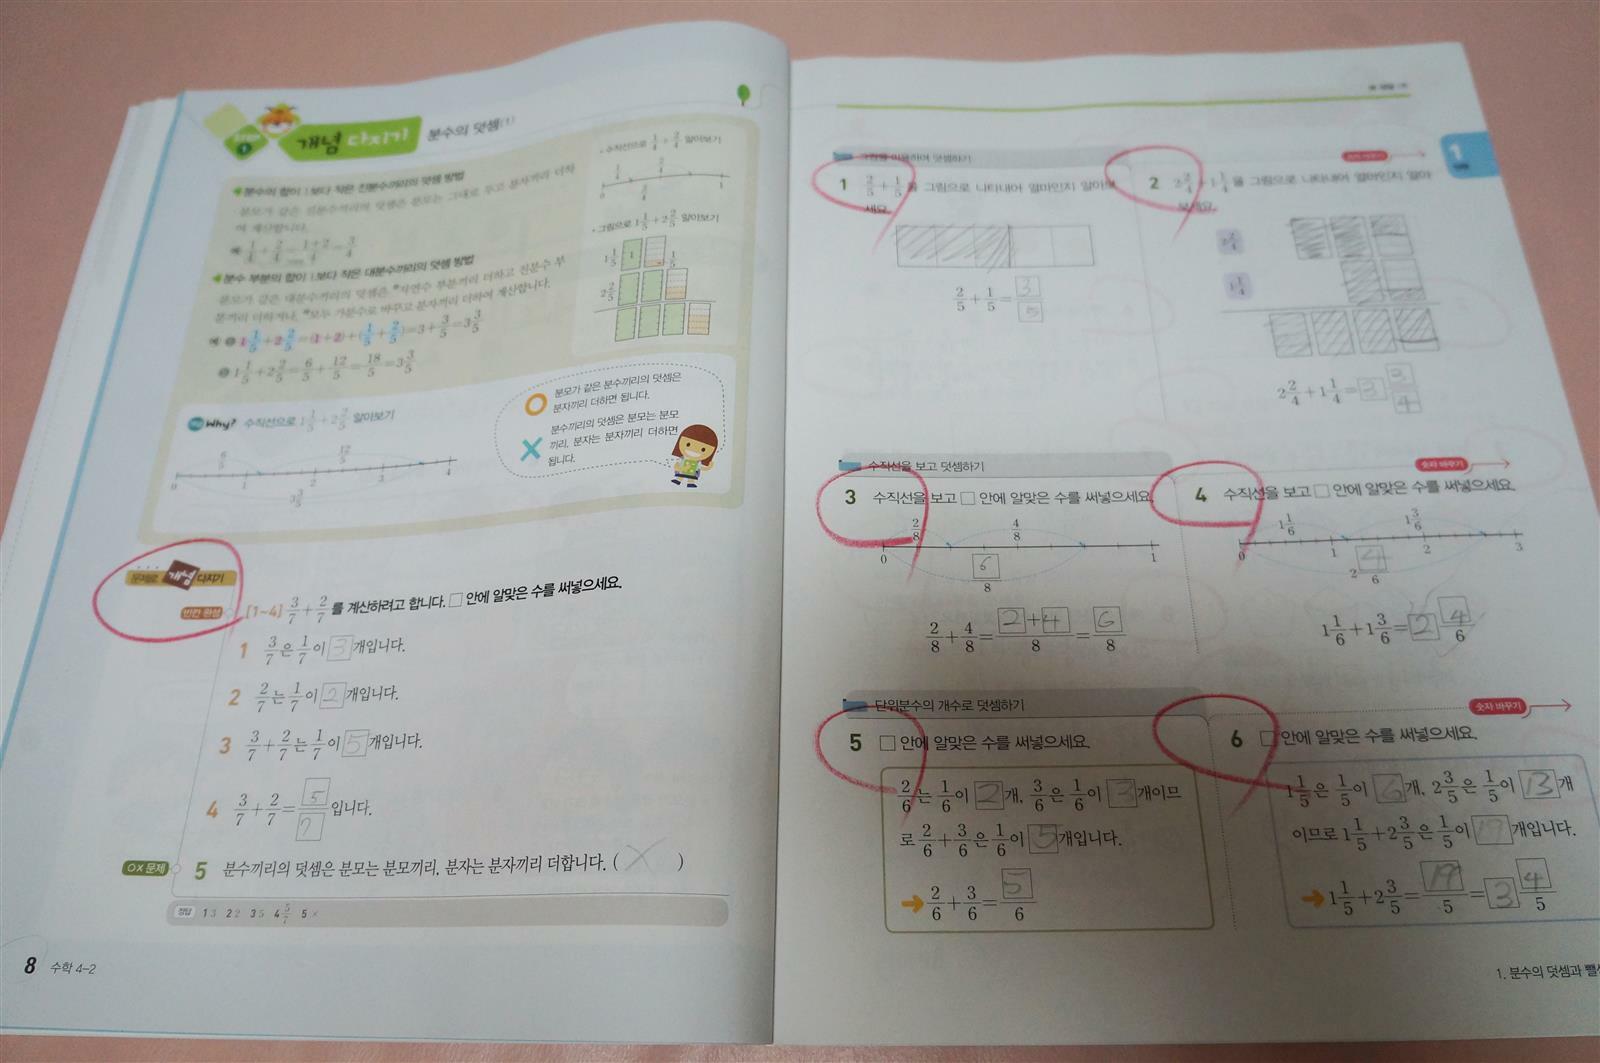 STEP 1 개념 다지기 분수의 덧셈(1)
◀ 분수의 합이 1보다 작은 진분수끼리의 덧셈 방법
분모가 같은 진분수끼리의 덧셈은 분모는 그대로 두고 분자끼리 더하
여 계산합니다.
예 1/4 + 2/4 = 1+2/4 = 3/4
◀ 분수 부분의 합이 1보다 작은 대분수끼리의 덧셈 방법
분모가 같은 대분수끼리의 덧셈은 ❶자연수 부분끼리 더하고 진분수 부
분끼리 더하거나, ❷모두 가분수로 바꾸고 분자끼리 더하여 계산합니다.
예 ❶ 1 1/5 + 2 2/5 = (1+2) + (1/5 + 2/5) = 3 + 3/5 = 3 3/5
❷ 1 1/5 + 2 2/5 = 6/5 + 12/5 = 18/5 = 3 3/5
• 수직선으로 1/4 + 2/4 알아보기
1/4 2/4
0 1
3/4
• 그림으로 1 1/5 + 2 2/5 알아보기
1 1/5 1 1/5
2 2/5
Why? 수직선으로 1 1/5 + 2 2/5 알아보기
6/5 12/5
0 1 2 3 4
3 3/5
분모가 같은 분수끼리의 덧셈은
분자끼리 더하면 됩니다.
분수끼리의 덧셈은 분모는 분모
끼리, 분자는 분자끼리 더하면
됩니다.
문제로 개념 다지기
빈칸 완성 [1~4] 3/7 + 2/7 를 계산하려고 합니다. □ 안에 알맞은 수를 써넣으세요.
1 3/7은 1/7이 3개입니다.
2 2/7는 1/7이 2개입니다.
3 3/7 + 2/7는 1/7이 5개입니다.
4 3/7 + 2/7 = 5/7입니다.
OX 문제 5 분수끼리의 덧셈은 분모는 분모끼리, 분자는 분자끼리 더합니다. ( X )
정답 1 3 2 2 3 5 4 5/7 5 ×
8 수학 4-2
1
그림을 이용하여 덧셈하기
1 2/5 + 1/5을 그림으로 나타내어 얼마인지 알아보
세요.
2/5 + 1/5 = 3/5
2 2 2/4 + 1 1/4을 그림으로 나타내어 얼마인지 알아
보세요.
2 2/4
1 1/4
2 2/4 + 1 1/4 = 3 3/4
수직선을 보고 덧셈하기
3 수직선을 보고 □ 안에 알맞은 수를 써넣으세요.
2/8 4/8
0 1
6/8
2/8 + 4/8 = 2+4/8 = 6/8
숫자 바꾸기
4 수직선을 보고 □ 안에 알맞은 수를 써넣으세요.
1 1/6 1 3/6
0 1 2 3
2 4/6
1 1/6 + 1 3/6 = 2 4/6
단위분수의 개수로 덧셈하기
5 □ 안에 알맞은 수를 써넣으세요.
2/6는 1/6이 2개, 3/6은 1/6이 3개이므
로 2/6 + 3/6은 1/6이 5개입니다.
➜ 2/6 + 3/6 = 5/6
숫자 바꾸기
6 □ 안에 알맞은 수를 써넣으세요.
1 1/5은 1/5이 6개, 2 3/5은 1/5이 13개
이므로 1 1/5 + 2 3/5은 1/5이 19개입니다.
➜ 1 1/5 + 2 3/5 = 19/5 = 3 4/5
1. 분수의 덧셈과 뺄